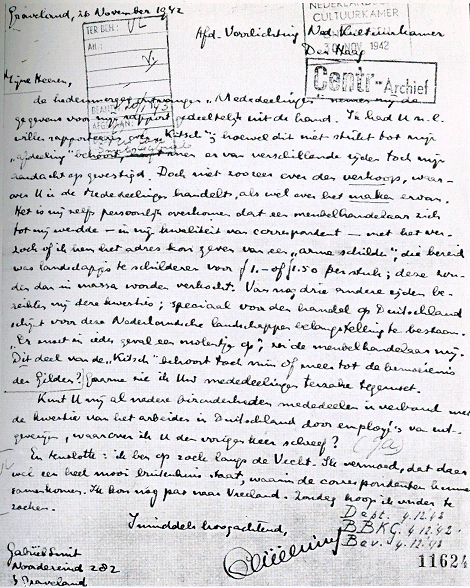 's Graveland, 26 November 1942
NEDERLANDSCHE
CULTUURKAMER
30 NOV. 1942
TER BEH: VL
Afd. Voorlichting Ned. Kultuurkamer
Den Haag
Centr-Archief
Mijne Heeren,
de hedenmorgen ontvangen "Mededeelingen" nemen mij de
gegevens voor mijn rapport gedeeltelijk uit de hand. Ik had U n.l.
willen rapporteeren over "Kitsch"; hoewel dit niet strikt tot mijn
"afdeeling" behoort, werd van verschillende zijden toch mijn
aandacht op gevestigd. Doch niet zoozeer over den verkoop, waar-
over U in de Mededeelingen handelt, als wel over het maken ervan.
Het is mij zelfs persoonlijk overkomen dat een meubelhandelaar zich
tot mij wendde - in mijn kwaliteit van correspondent - met het ver-
zoek of ik hem het adres kon geven van een "arme schilder", die bereid
was landschapjes te schilderen voor f 1.- of f 1.50 per stuk; deze wor-
den dan in massa worden verkocht. Van nog drie andere zijden be-
reikte mij deze kwestie; speciaal voor den handel op Duitschland
schijnt voor deze Nederlandsche landschapjes belangstelling te bestaan.
"Er moet in ieder geval een molentje op", zei de meubelhandelaar mij.
Dit deel van de "Kitsch" behoort toch min of meer tot de bemoeienis
der Gilden? Gaarne zie ik Uw mededeelingen terzake tegemoet.
Kunt U mij al nadere bizonderheden mededeelen in verband met
de kwestie van het arbeiden in Duitschland door employé's van uit-
geverijen, waarover ik U den vorigen keer schreef? (Ja)
En tenslotte: ik ben op zoek langs de Vecht. Ik vermoed, dat daar
wel een heel mooi buitenhuis staat, waarin de correspondenten kunnen
samenkomen. Ik kon nog pas naar Vreeland. Zondag hoop ik verder te
zoeken.
Inmiddels hoogachtend,
Gabriël Smit
Noordereind 282
's Graveland
Dept. 4.12.42
B.B.K.G. 4.12.42
Bev. 4.12.42
11624